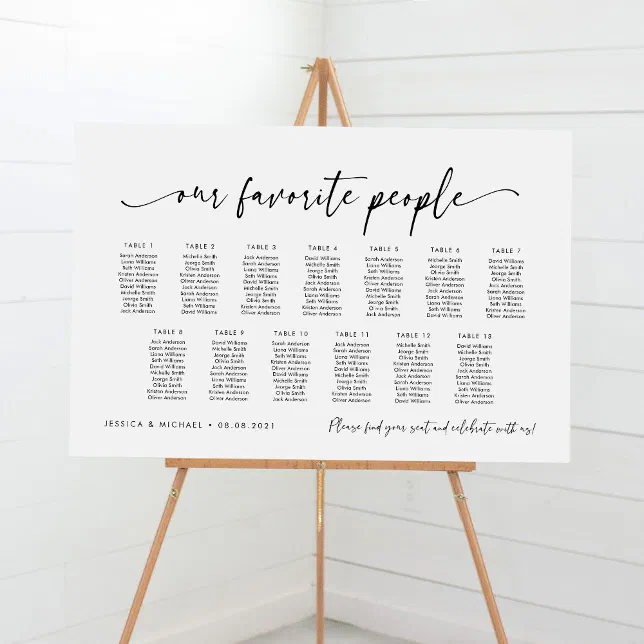 our favorite people
TABLE 1
Sarah Anderson
Liana Williams
Seth Williams
Kristen Anderson
Oliver Anderson
David Williams
Michelle Smith
Jeorge Smith
Olivia Smith
Jack Anderson
TABLE 2
Michelle Smith
Jeorge Smith
Olivia Smith
Kristen Anderson
Oliver Anderson
David Williams
Jack Anderson
Sarah Anderson
Liana Williams
Seth Williams
TABLE 3
Jack Anderson
Sarah Anderson
Liana Williams
Seth Williams
David Williams
Michelle Smith
Jeorge Smith
Olivia Smith
Kristen Anderson
Oliver Anderson
TABLE 4
David Williams
Michelle Smith
Jeorge Smith
Olivia Smith
Jack Anderson
Sarah Anderson
Liana Williams
Seth Williams
Kristen Anderson
Oliver Anderson
TABLE 5
Sarah Anderson
Liana Williams
Seth Williams
Kristen Anderson
Oliver Anderson
David Williams
Michelle Smith
Jeorge Smith
Olivia Smith
Jack Anderson
TABLE 6
Michelle Smith
Jeorge Smith
Olivia Smith
Kristen Anderson
Oliver Anderson
Jack Anderson
Sarah Anderson
Liana Williams
Seth Williams
David Williams
TABLE 7
David Williams
Michelle Smith
Jeorge Smith
Olivia Smith
Jack Anderson
Sarah Anderson
Liana Williams
Seth Williams
Kristen Anderson
Oliver Anderson
TABLE 8
Jack Anderson
Sarah Anderson
Liana Williams
Seth Williams
David Williams
Michelle Smith
Jeorge Smith
Olivia Smith
Kristen Anderson
Oliver Anderson
TABLE 9
David Williams
Michelle Smith
Jeorge Smith
Olivia Smith
Jack Anderson
Sarah Anderson
Liana Williams
Seth Williams
Kristen Anderson
Oliver Anderson
TABLE 10
Sarah Anderson
Liana Williams
Seth Williams
Kristen Anderson
Oliver Anderson
David Williams
Michelle Smith
Jeorge Smith
Olivia Smith
Jack Anderson
TABLE 11
Jack Anderson
Sarah Anderson
Liana Williams
Seth Williams
David Williams
Michelle Smith
Jeorge Smith
Olivia Smith
Kristen Anderson
Oliver Anderson
TABLE 12
Michelle Smith
Jeorge Smith
Olivia Smith
Kristen Anderson
Oliver Anderson
Jack Anderson
Sarah Anderson
Liana Williams
Seth Williams
David Williams
TABLE 13
David Williams
Michelle Smith
Jeorge Smith
Olivia Smith
Jack Anderson
Sarah Anderson
Liana Williams
Seth Williams
Kristen Anderson
Oliver Anderson
JESSICA & MICHAEL • 08.08.2021
Please find your seat and celebrate with us!